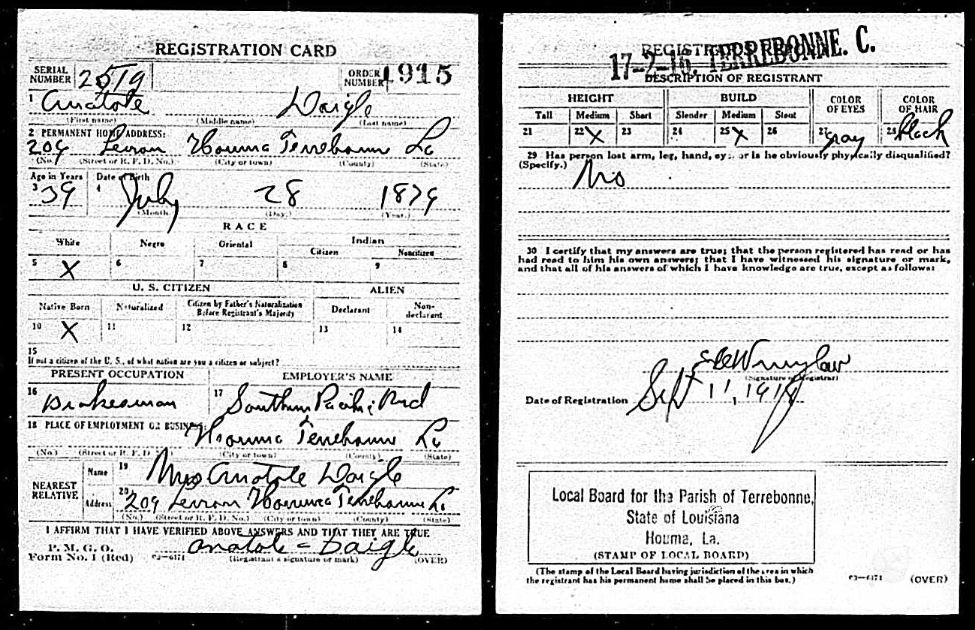 REGISTRATION CARD
SERIAL NUMBER 2519 ORDER NUMBER 1915
1 Anatole Daigle
(First name) (Middle name) (Last name)
2 PERMANENT HOME ADDRESS:
209 Levron Houma Terrebonne La
(No.) (Street or R. F. D. No.) (City or town) (County) (State)
Age in Years Date of Birth
3 39 4 July 28 1879
(Month.) (Day.) (Year.)
RACE
White Negro Oriental Indian
Citizen Noncitizen
5 X 6 7 8 9
U. S. CITIZEN ALIEN
Native Born Naturalized Citizen by Father's Naturalization Before Registrant's Majority Declarant Non-declarant
10 X 11 12 13 14
15
If not a citizen of the U. S., of what nation are you a citizen or subject?
PRESENT OCCUPATION EMPLOYER'S NAME
16 Brakesman 17 Southern Pacific Rrd
18 PLACE OF EMPLOYMENT OR BUSINESS:
Houma Terrebonne La
(No.) (Street or R. F. D. No.) (City or town) (County) (State)
NEAREST RELATIVE
Name 19 Mrs Anatole Daigle
Address 20 209 Levron Houma Terrebonne La
(No.) (Street or R. F. D. No.) (City or town) (County) (State)
I AFFIRM THAT I HAVE VERIFIED ABOVE ANSWERS AND THAT THEY ARE TRUE
P. M. G. O.
Form No. 1 (Red) 03-6171 anatole - Daigle
(Registrant's signature or mark) (OVER)
REGISTRAR'S REPORT
17-2-16, TERREBONNE. C.
DESCRIPTION OF REGISTRANT
HEIGHT BUILD COLOR OF EYES COLOR OF HAIR
Tall Medium Short Slender Medium Stout
21 22 X 23 24 25 X 26 27 gray 28 black
29 Has person lost arm, leg, hand, eye, or is he obviously physically disqualified?
(Specify.) No
30 I certify that my answers are true; that the person registered has read or has
had read to him his own answers; that I have witnessed his signature or mark,
and that all of his answers of which I have knowledge are true, except as follows:
(Signature of Registrar)
Date of Registration Sept 11 1918
Local Board for the Parish of Terrebonne,
State of Louisiana
Houma, La.
(STAMP OF LOCAL BOARD)
(The stamp of the Local Board having jurisdiction of the area in which
the registrant has his permanent home shall be placed in this box.)
03-6171 (OVER)